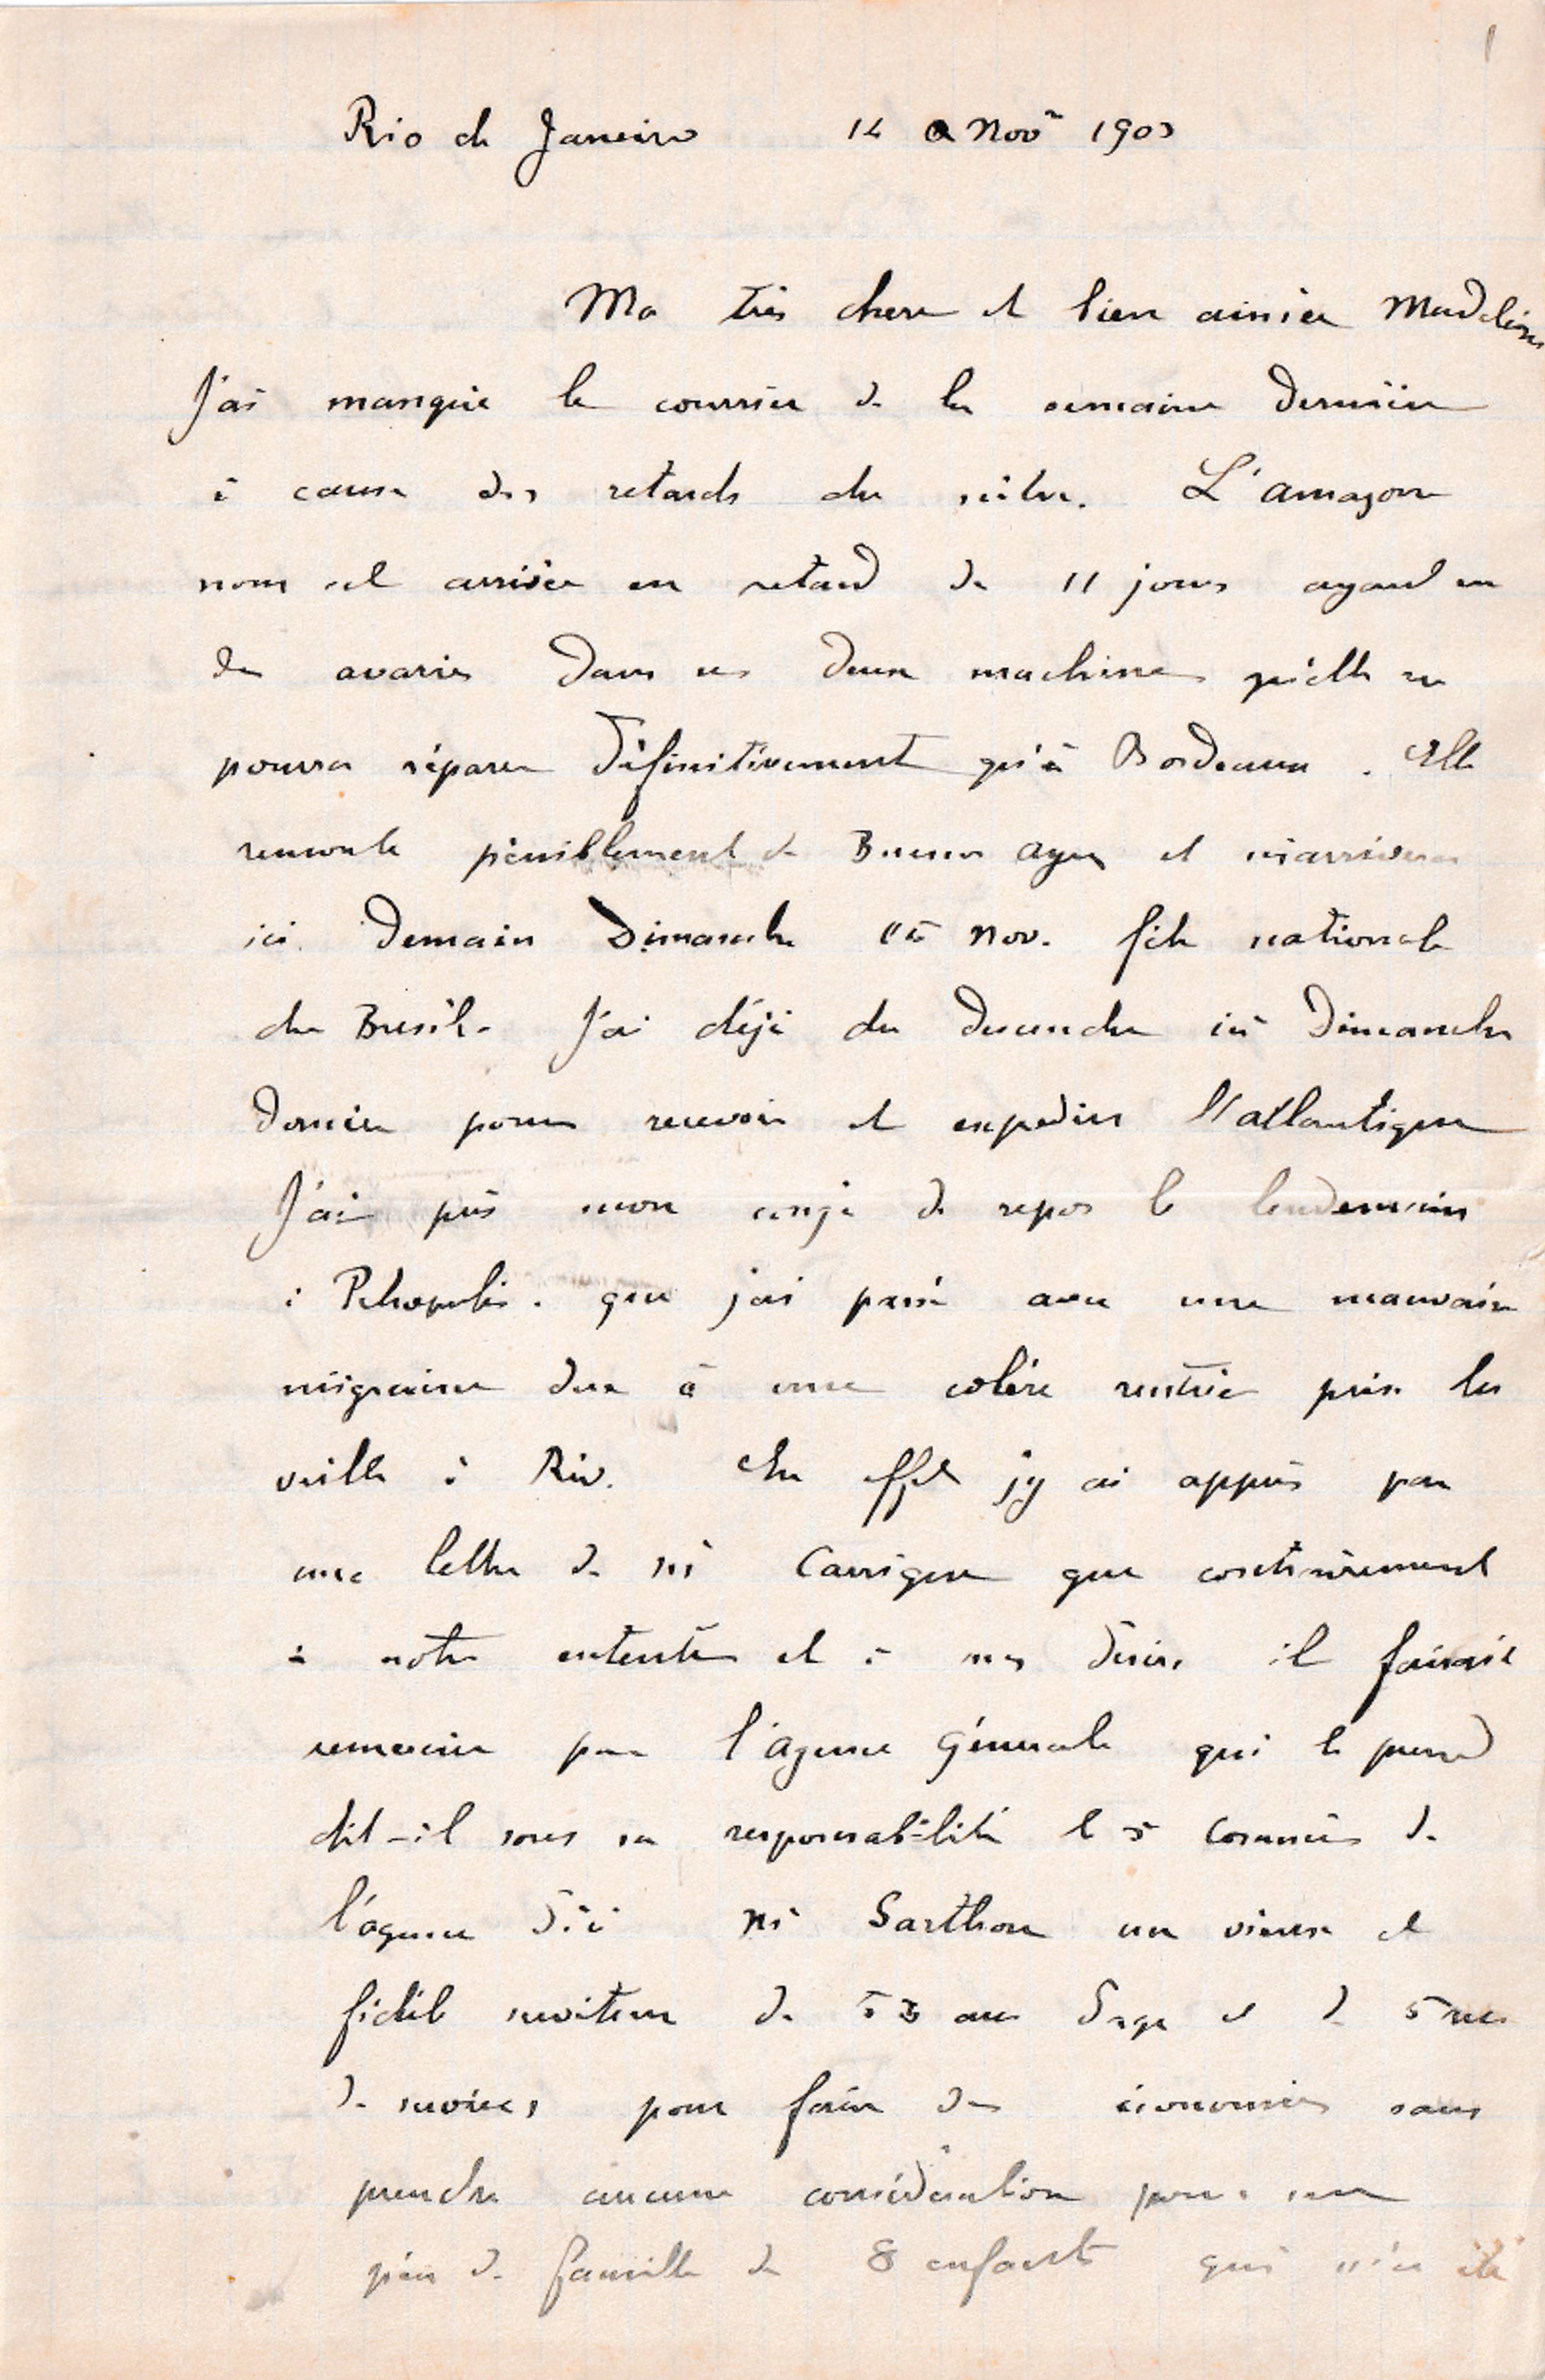 1
Rio de Janeiro 14 Nov 1903
Ma très chere et bien aimée Madeleine
J'ai manqué le courrier de la semaine dernière
à cause des retards du nôtre. L'amazone
nous est arrivée en retard de 11 jours ayant eu
des avaries dans ses deux machines qu'elle ne
pourra réparer définitivement qu'à Bordeaux. Elle
remonte péniblement de Buenos ayres et n'arrivera
ici demain Dimanche 15 Nov. fête nationale
du Bresil. J'ai déjà du descendre ici Dimanche
dernier pour recevoir et expedier l'atlantique
J'ai pris mon congé de repos le lendemain
à Petropolis. que j'ai passé avec une mauvaise
migraine due à une colère rentrée prise la
veille à Rio. En effet j'y ai appris par
une lettre de Mr Carrigue que contrairement
à notre entente et à mes désirs il faisait
remercier par l'agence Générale qui le prend
dit-il sous sa responsabilité le 5e Commis de
l'agence d'ici Mr Sarthou un vieux et
fidèle serviteur de 53 ans d'age et de 5 ans
de services pour faire des économies sans
prendre aucune considération pour un
père de famille de 8 enfants qui n'a été